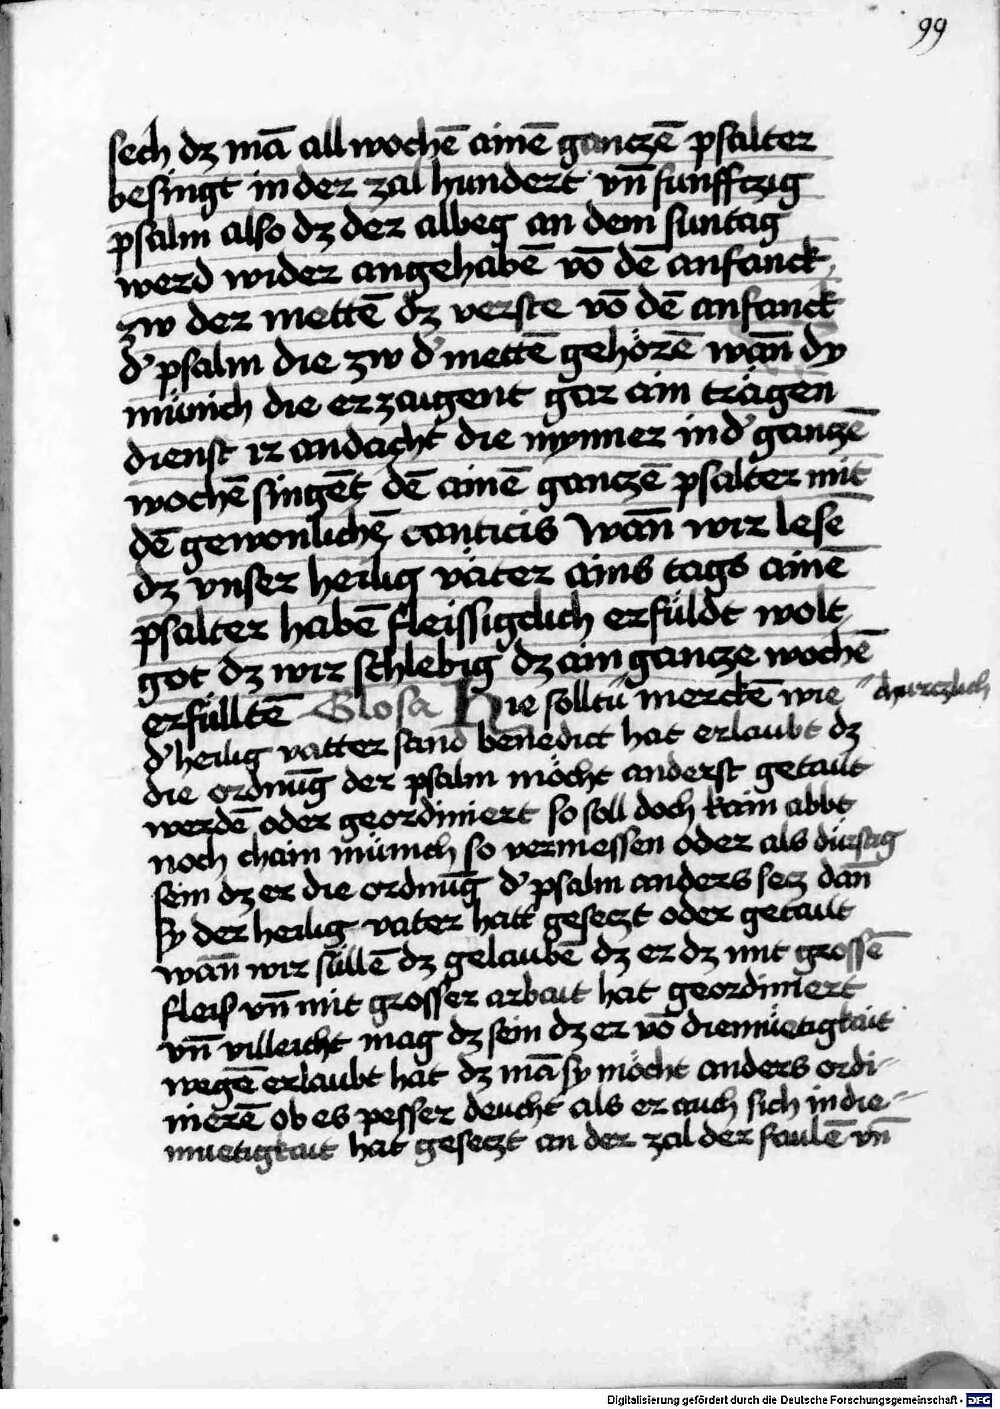 99
sech dz mā all wochē ainē ganczē psalter
besingt in der zal hundert vn̄ funfftzig
psalm also dz der albeg an dem suntag
werd wider angehabē vō dē anfanck
zw der mettē dz verste vō dē anfanck
d' psalm die zw d' mettē gehörē wan̄ dy
münich die erzaugent gar ain trägen
dienst ir andacht die mynner in d' ganczē
wochē singēt dē ainē ganczē psalter mit
dē gewonlichē canticis wan̄ wir lesē
dz vnser heilig väter ains tags ainē
psalter habē fleissigclich erfüldt wolt
got dz wir schlebig dz ain gancze wochē
erfülltē Glosa Hie solltu merckē wie churczlich
d' heilig vatter sand benedict hat erlaubt dz
die ordnūg der psalm möcht anderst getailt
werdē oder geordiniert so soll doch kain abbt
noch chain münich so vermessen oder als dürstig
sein dz er die ordnūg d' psalm anders secz dan̄
sy der heilig vater hatt geseczt oder getailt
wan̄ wir süllē dz gelaubē dz er dz mit grossē
fleiss vn̄ mit grosser arbait hat geordiniert
vn̄ villeicht mag dz sein dz er vō diemüetigkait
wegē erlaubt hat dz mā sy möcht anders ordi-
nierē ob es pesser deucht als er auch sich in die-
muetigkait hat geseczt an der zal der faulē vn̄
Digitalisierung gefördert durch die Deutsche Forschungsgemeinschaft - DFG